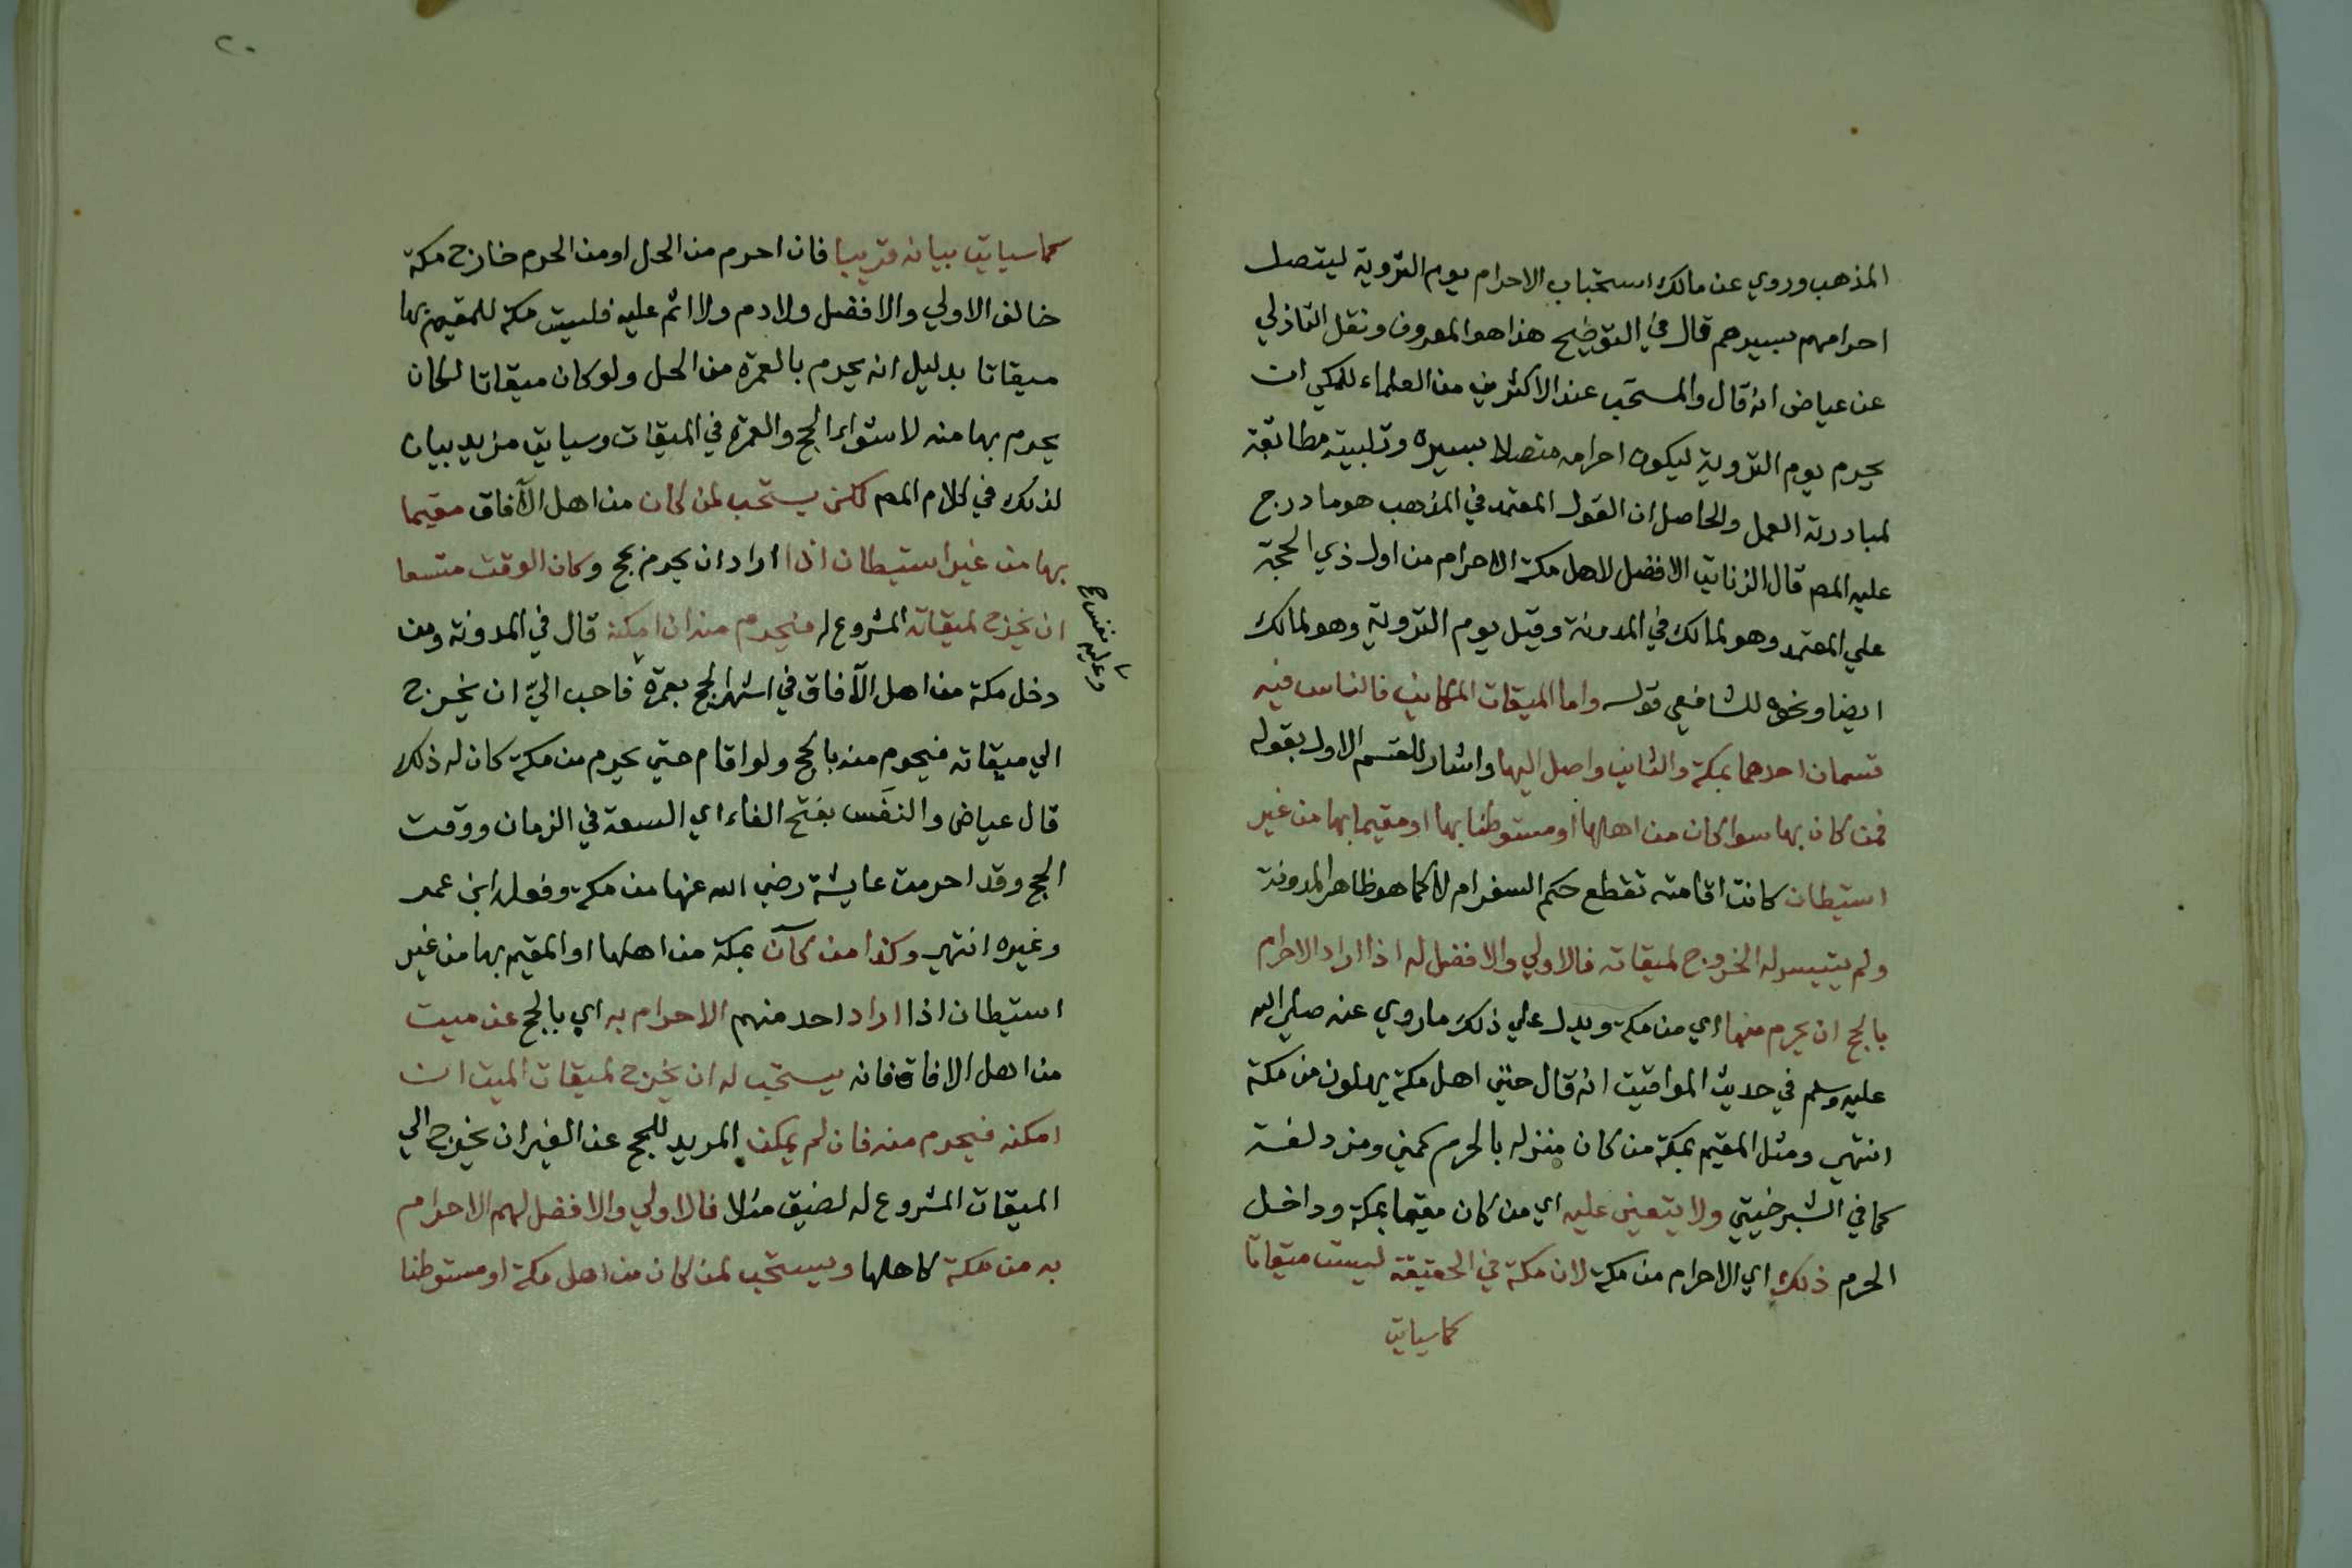 المذهب وروي عن مالك استحباب الاحرام يوم التروية ليتصل
احرامهم بسيرهم قال في التوضيح هذا هو المعروف ونقل التاذلي
عن عياض انه قال والمستحب عند الاكثرين من العلماء للمكي ان
يحرم يوم التروية ليكون احرامه متصلا بسيره وتلبيته مطابقة
لمبادرته العمل والحاصل ان القول المعتمد في المذهب هو ما درج
عليه المصر قال الزناتي الافضل لاهل مكة الاحرام من اول ذي الحجة
علي المعتمد وهو لمالك في المدونة وقيل يوم التروية وهو لمالك
ايضا ونحوه للشافعي قوله واما الميقات المكاني فالناس فيه
قسمان احدهما بمكة والثاني واصل اليها واشار للقسم الاول بقوله
فمن كان بها سوا كان من اهلها او مستوطنا بها او مقيما بها من غير
استيطان كانت اقامته تقطع حكم السفر ام لا كما هو ظاهر المدونة
ولم يتيسر له الخروج لميقاته فالاولي والافضل له اذا اراد الاحرام
بالحج ان يحرم منها اي من مكة ويدل علي ذلك ما روي عنه صلي الله
عليه وسلم في حديث المواقيت انه قال حتي اهل مكة يهلون من مكة
انتهي ومثل المقيم بمكة من كان منزله بالحرم كمني ومزدلفة
كما في الشبرخيتي ولا يتعين عليه اي من كان مقيما بمكة وداخل
الحرم ذلك اي الاحرام من مكة لان مكة في الحقيقة ليست ميقاتا
كما سياتي
٢٠
كما سياتي بيانه قريبا فان احرم من الحل او من الحرم خارج مكة
خالف الاولي والافضل ولا دم ولا اثم عليه فليست مكة للمقيم بها
ميقاتا بدليل انه يحرم بالعمرة من الحل ولو كان ميقاتا لكان
يحرم بها منه لاستواء الحج والعمرة في الميقات وسياتي مزيد بيان
لذلك في كلام المصر لكن يستحب لمن كان من اهل الآفاق مقيما
بها من غير استيطان اذا اراد ان يحرم بحج وكان الوقت متسعا
ان يخرج لميقاته المشروع له فيحرم منه ان امكنه قال في المدونة ومن
دخل مكة من اهل الآفاق في اشهر الحج بعمرة فاحب الي ان يخرج
وعليه نفس صح
الي ميقاته فيحرم منه بالحج ولو اقام حتي يحرم من مكة كان له ذلك
قال عياض والنفَس بفتح الفاء اي السعة في الزمان ووقت
الحج وقد احرمت عايشة رضي الله عنها من مكة وفعله ابن عمر
وغيره انتهي وكذا من كان بمكة من اهلها او المقيم بها من غير
استيطان اذا اراد احد منهم الاحرام به اي بالحج عن ميت
من اهل الافاق فانه يستحب له ان يخرج لميقات الميت ان
امكنه فيحرم منه فان لم يمكن المريد للحج عن الغير ان يخرج الي
الميقات المشروع له لضيق مثلا فالاولي والافضل لهم الاحرام
به من مكة كاهلها ويستحب لمن كان من اهل مكة او مستوطنا